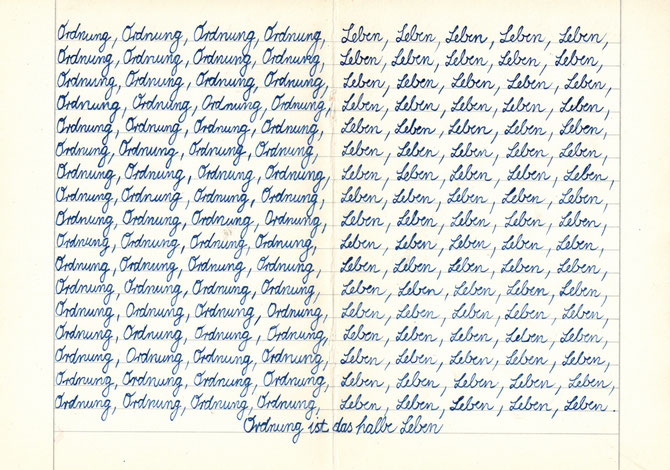 Ordnung, Ordnung, Ordnung, Ordnung, Leben, Leben, Leben, Leben, Leben,
Ordnung, Ordnung, Ordnung, Ordnung, Leben, Leben, Leben, Leben, Leben,
Ordnung, Ordnung, Ordnung, Ordnung, Leben, Leben, Leben, Leben, Leben,
Ordnung, Ordnung, Ordnung, Ordnung, Leben, Leben, Leben, Leben, Leben,
Ordnung, Ordnung, Ordnung, Ordnung, Leben, Leben, Leben, Leben, Leben,
Ordnung, Ordnung, Ordnung, Ordnung, Leben, Leben, Leben, Leben, Leben,
Ordnung, Ordnung, Ordnung, Ordnung, Leben, Leben, Leben, Leben, Leben,
Ordnung, Ordnung, Ordnung, Ordnung, Leben, Leben, Leben, Leben, Leben,
Ordnung, Ordnung, Ordnung, Ordnung, Leben, Leben, Leben, Leben, Leben,
Ordnung, Ordnung, Ordnung, Ordnung, Leben, Leben, Leben, Leben, Leben,
Ordnung, Ordnung, Ordnung, Ordnung, Leben, Leben, Leben, Leben, Leben,
Ordnung, Ordnung, Ordnung, Ordnung, Leben, Leben, Leben, Leben, Leben,
Ordnung, Ordnung, Ordnung, Ordnung, Leben, Leben, Leben, Leben, Leben,
Ordnung, Ordnung, Ordnung, Ordnung, Leben, Leben, Leben, Leben, Leben,
Ordnung, Ordnung, Ordnung, Ordnung, Leben, Leben, Leben, Leben, Leben,
Ordnung, Ordnung, Ordnung, Ordnung, Leben, Leben, Leben, Leben, Leben,
Ordnung, Ordnung, Ordnung, Ordnung, Leben, Leben, Leben, Leben, Leben.
Ordnung ist das halbe Leben